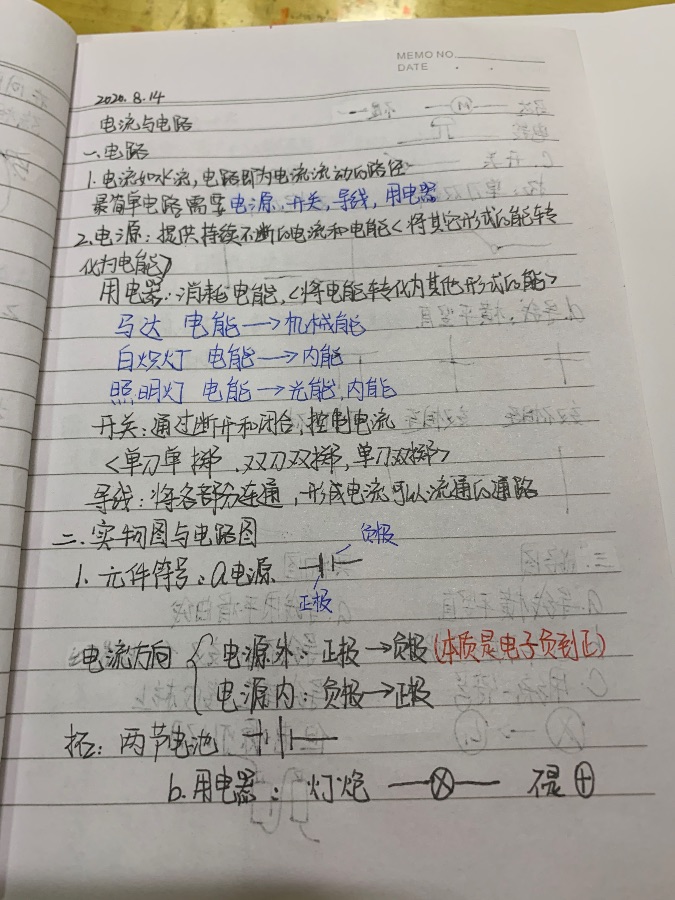 MEMO NO.
DATE
2020.8.14
电流与电路
一、电路
1.电流如水流,电路即为电流流动的路径
最简单电路需要电源、开关,导线,用电器
2.电源:提供持续不断的电流和电能<将其它形式的能转
化为电能>
用电器:消耗电能,<将电能转化为其他形式的能>
马达 电能→机械能
白炽灯 电能→内能
照明灯 电能→光能,内能
开关:通过断开和闭合,控制电流
<单刀单掷、双刀双掷,单刀双掷>
导线:将各部分连通,形成电流可以流通的通路
二、实物图与电路图
负极
1.元件符号:a电源
正极
电流方向 电源外:正极→负极(本质是电子负到正)
电源内:负极→正极
拓:两节电池
b.用电器:灯炮 不是